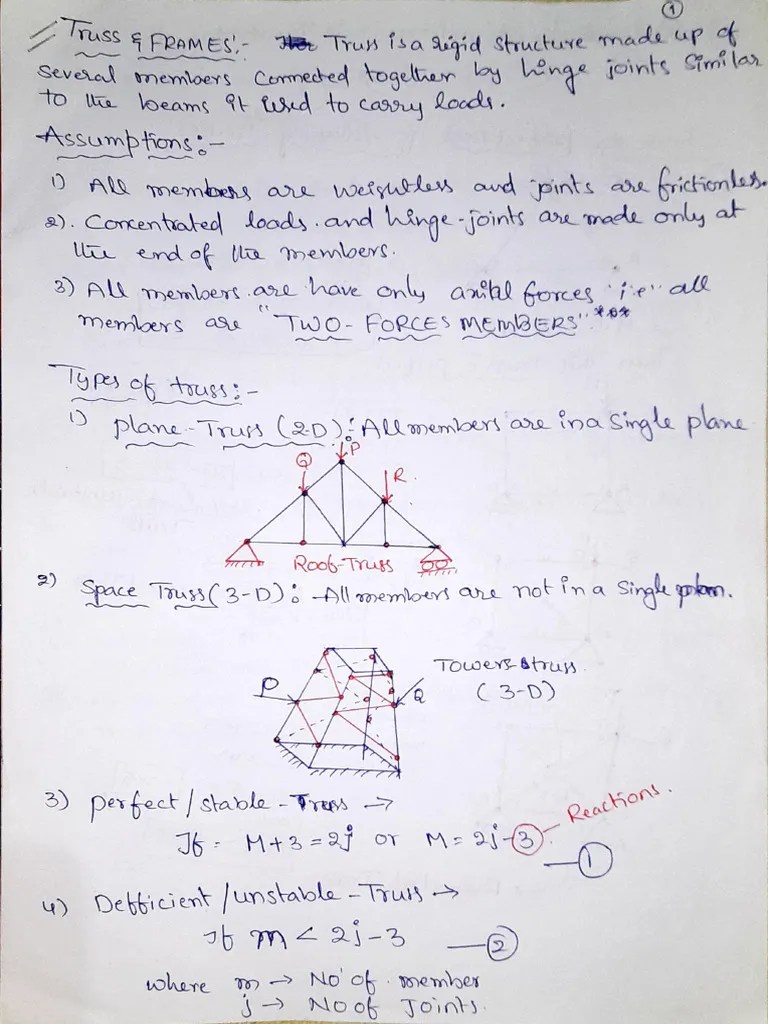 1
Truss & FRAMES:- Truss is a rigid structure made up of
several members connected together by hinge joints similar
to the beams it used to carry loads.
Assumptions:-
1) All members are weightless and joints are frictionless.
2). Concentrated loads. and hinge-joints are made only at
the end of the members.
3) All members are have only axial forces "i.e" all
members are "TWO-FORCES MEMBERS" ***
Types of truss:-
1) plane-Truss (2-D): All members are in a Single plane
P
Q
R.
Roof-Truss
2) Space Truss (3-D): All members are not in a Single plan.
Towers-truss
P
Q
(3-D)
3) perfect/stable-Truss →
Reactions.
If = M+3=2j or M=2j-3
1
4) Defficient/unstable-Truss →
If m < 2j-3
2
where m → No of member
j → No of Joints.